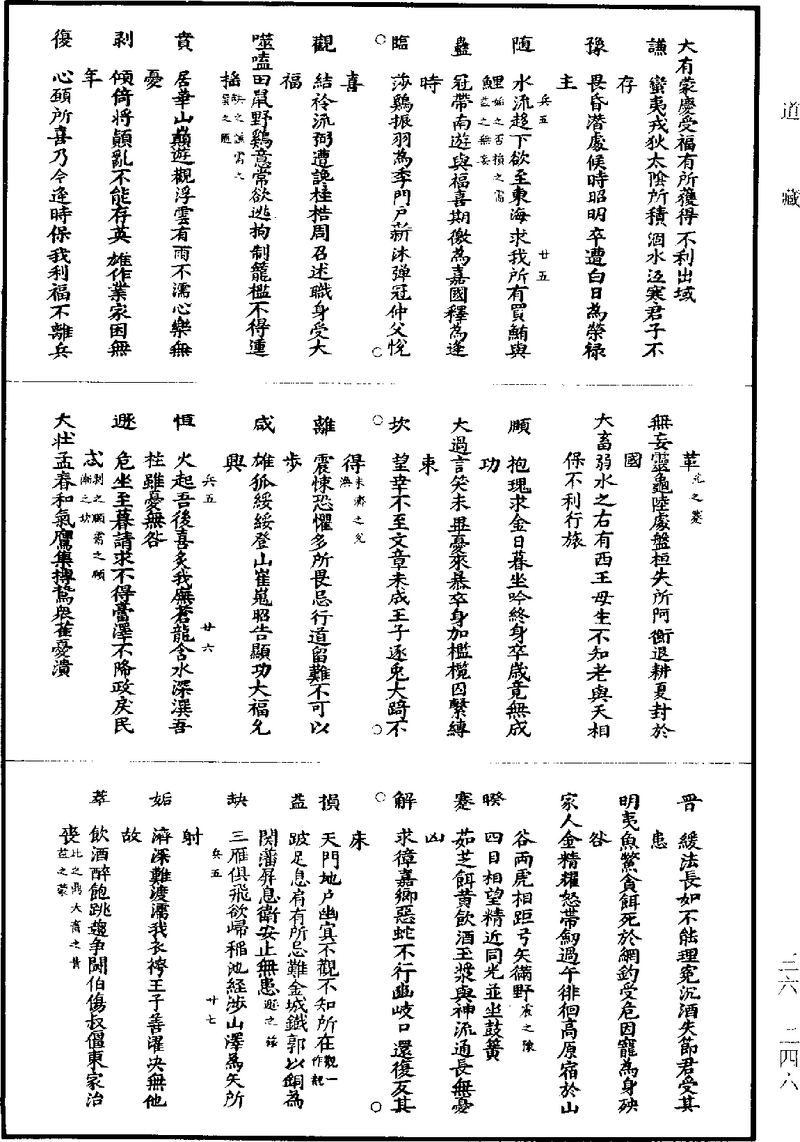 道藏
大有蒙慶受福有所獲得不利出域
謙　蠻夷戎狄太陰所積涸水沍寒君子不
存
豫　畏昏潛處候時昭明卒遭白日為榮祿
主
兵五　廿五
随　水流趍下欲至東海求我所有買鮪與
鯉
蠱　冠帶南遊與福喜期徼為嘉國釋為逢
時
臨　莎鷄振羽為季門戶新沐彈冠仲父悅
喜
觀　結衿流粥遭讒桎梏周召述職身受大
福
噬嗑田鼠野鷄意常欲逃拘制籠檻不得運
搖
賁　居華山巔遊觀浮雲有雨不濡心樂無
憂
剥　傾倚將顛亂不能存英雄作業家困無
年
復　心頤所喜乃今逢時保我利福不離兵
革
無妄靈龜陸處盤桓失所阿衡退耕夏封於
國
大畜弱水之右有西王母生不知老與天相
保不利行旅
頤　抱瑰求金日暮坐吟終身卒歲竟無成
功
大過言笑未畢憂來暴卒身加檻纜囚繫縛
束
坎　望幸不至文章未成王子逐兎犬踦不
得未濟之兊渙
離　震悚恐懼多所畏忌行道留難不可以
步
咸　雄狐綏綏登山崔嵬昭告顯功大福允
興
兵五　廿六
恒　火起吾後喜炙我廡蒼龍含水深潠吾
柱雖憂無咎
遯　危坐至暮請求不得膏澤不降政戾民
忒
大壮孟春和氣鷹隼搏鷙衆雀憂潰
晋　緩法長如不能理寃沉酒失節君受其
患
明夷魚驚貪餌死於網釣受危因寵為身殃
咎
家人金精耀怒帶劒過午徘徊高原宿於山
谷兩虎相距弓矢滿野
睽　四目相望精近同光並坐鼓簧
蹇　茹芝餌黄飲酒玉漿與神流通長無憂
凶
解　求獐嘉鄉惡蛇不行幽岐口還復反其
床
損　天門地戶幽冥不觀不知所在觀一作覩
益　跛足息肩有所忌難金城鐵郭以銅為
関藩屏息衛安止無患
兵五　廿七
缺　三雁俱飛欲歸稻池經涉山澤為矢所
射
姤　濟深難渡濡我衣袴王子善濯决無他
故
萃　飲酒醉飽跳躩争鬪伯傷叔僵東家治
喪
三六　二四六